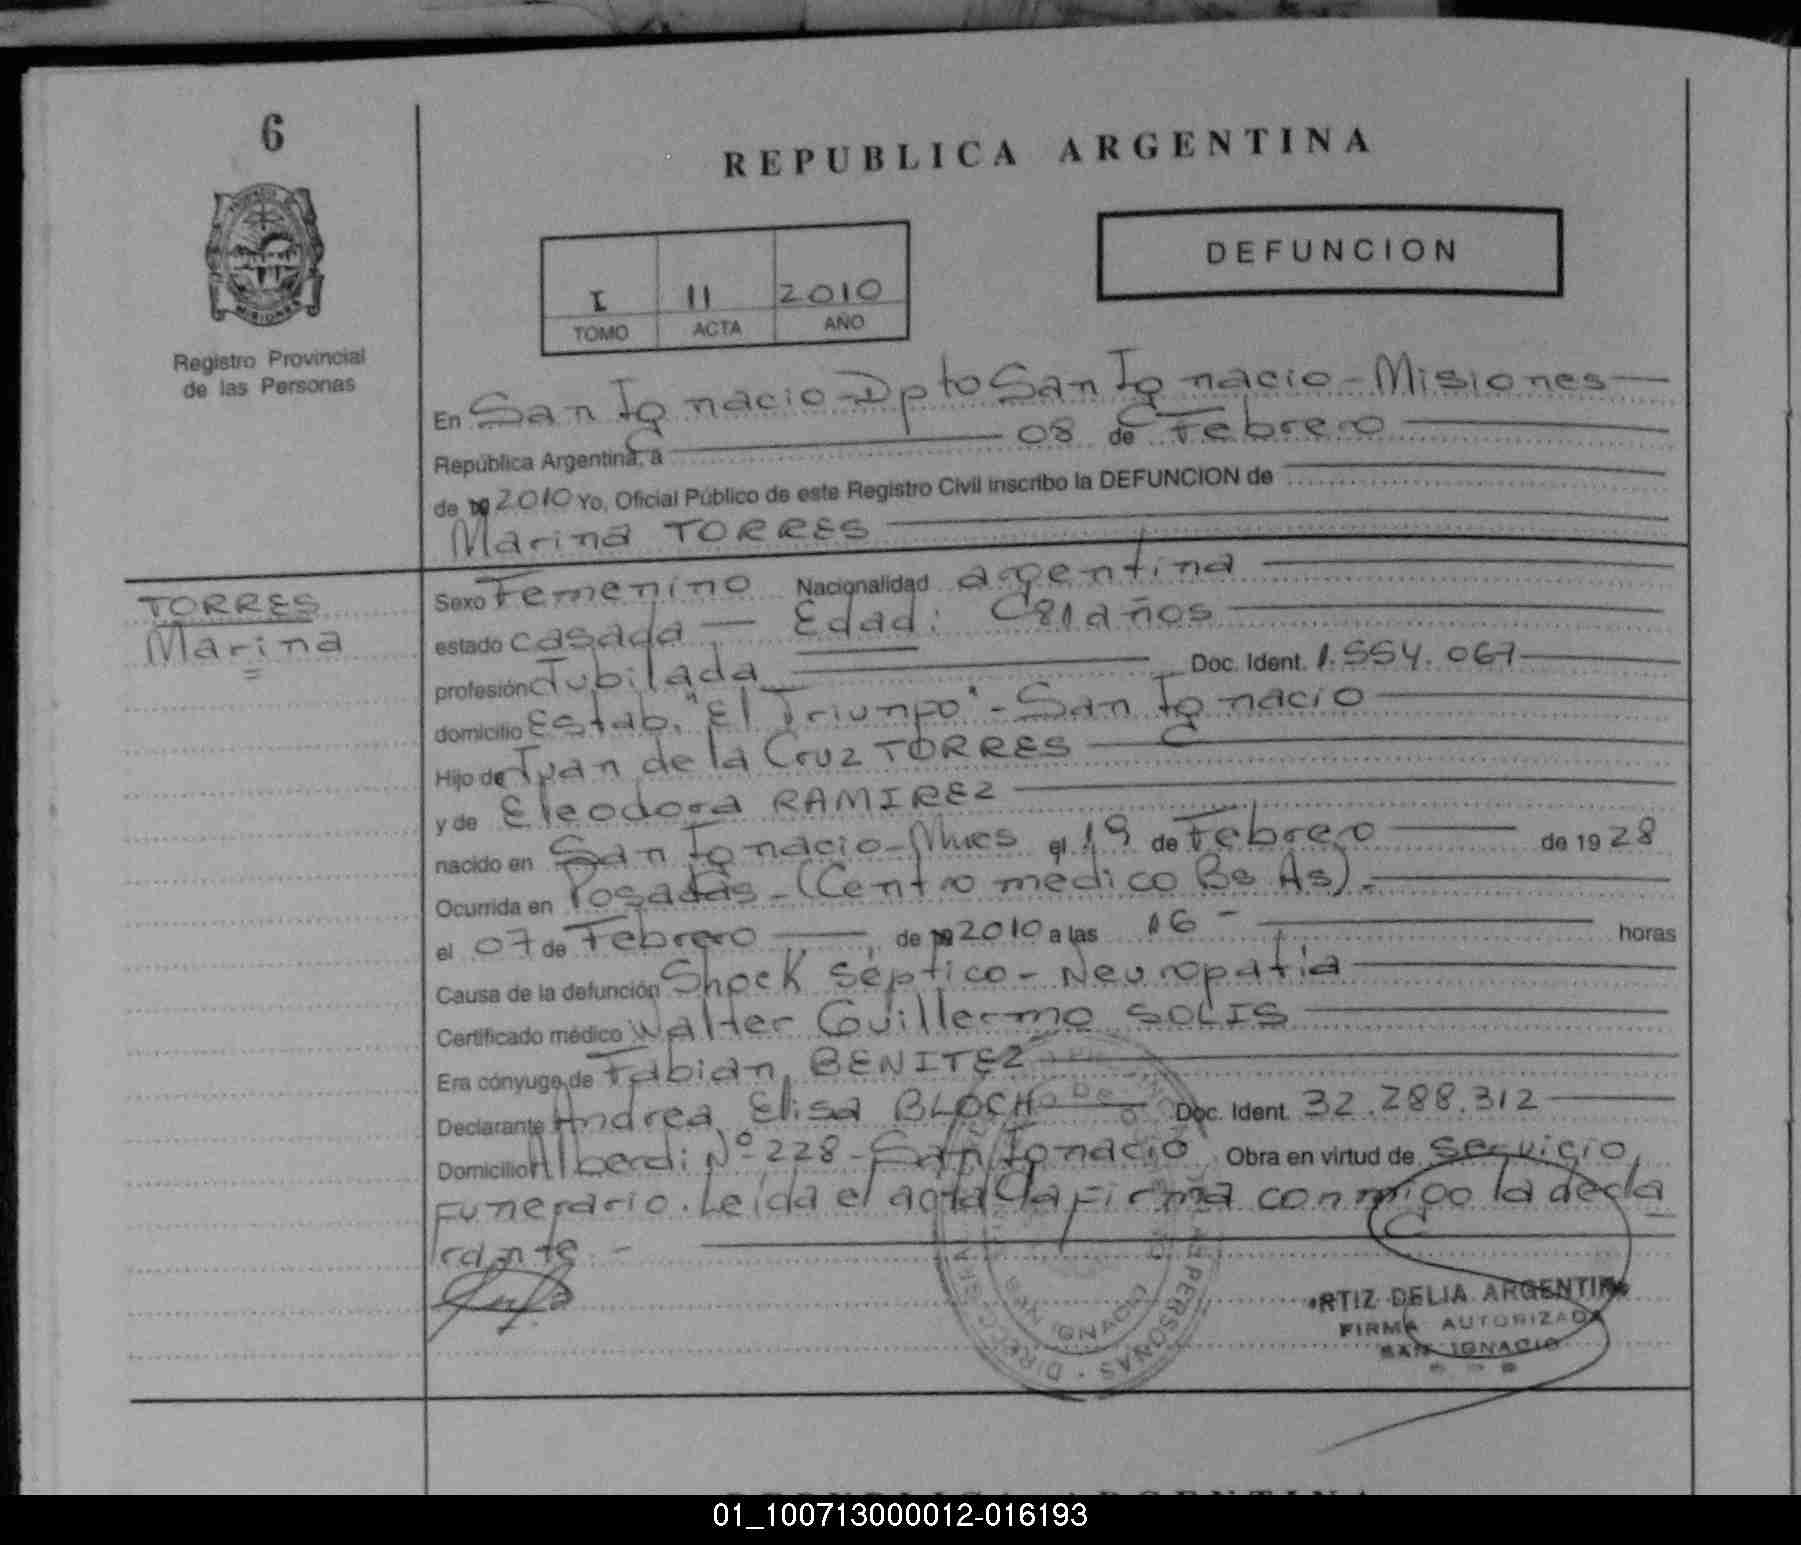 6
REPUBLICA ARGENTINA
DEFUNCION
I 11 2010
TOMO ACTA AÑO
MISIONES
Registro Provincial
de las Personas
En San Ignacio - Dpto San Ignacio - Misiones
República Argentina, a 08 de Febrero
de 19 2010 Yo, Oficial Público de este Registro Civil inscribo la DEFUNCION de
Marina TORRES
TORRES
Marina
Sexo Femenino Nacionalidad argentina
estado casada - Edad: 81 años
profesión Jubilada Doc. Ident. 1.554.067
domicilio Estab. "El Triunfo" - San Ignacio
Hijo de Juan de la Cruz TORRES
y de Eleodora RAMIREZ
nacido en San Ignacio - Mnes el 19 de Febrero de 19 28
Ocurrida en Posadas - (Centro medico Bs As).
el 07 de Febrero de 19 2010 a las 16 - horas
Causa de la defunción Shock Séptico - Neuropatía
Certificado médico Walter Guillermo SOLIS
Era cónyuge de Fabian BENITEZ
Declarante Andrea Elisa BLOCH Doc. Ident. 32.288.312
Domicilio Alberdi Nº 228 - San Ignacio Obra en virtud de servicio
funerario. Leída el acta la firma conmigo la decla
rante. -
RTIZ DELIA ARGENTINA
FIRMA AUTORIZADA
SAN IGNACIO
PERSONAS
01_100713000012-016193